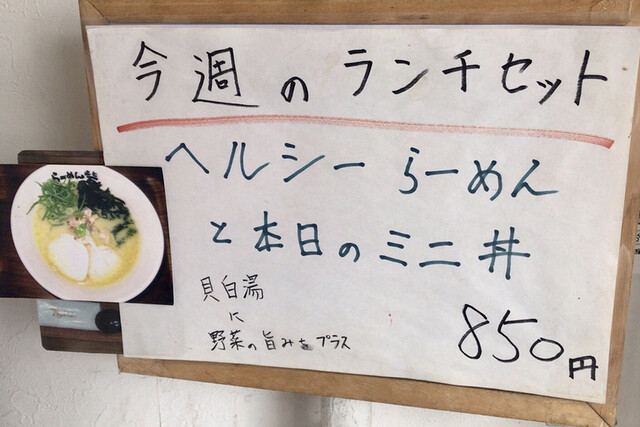 今週のランチセット
ヘルシーらーめん
と本日のミニ丼
貝白湯
に
野菜の旨みをプラス
850円
らーめん